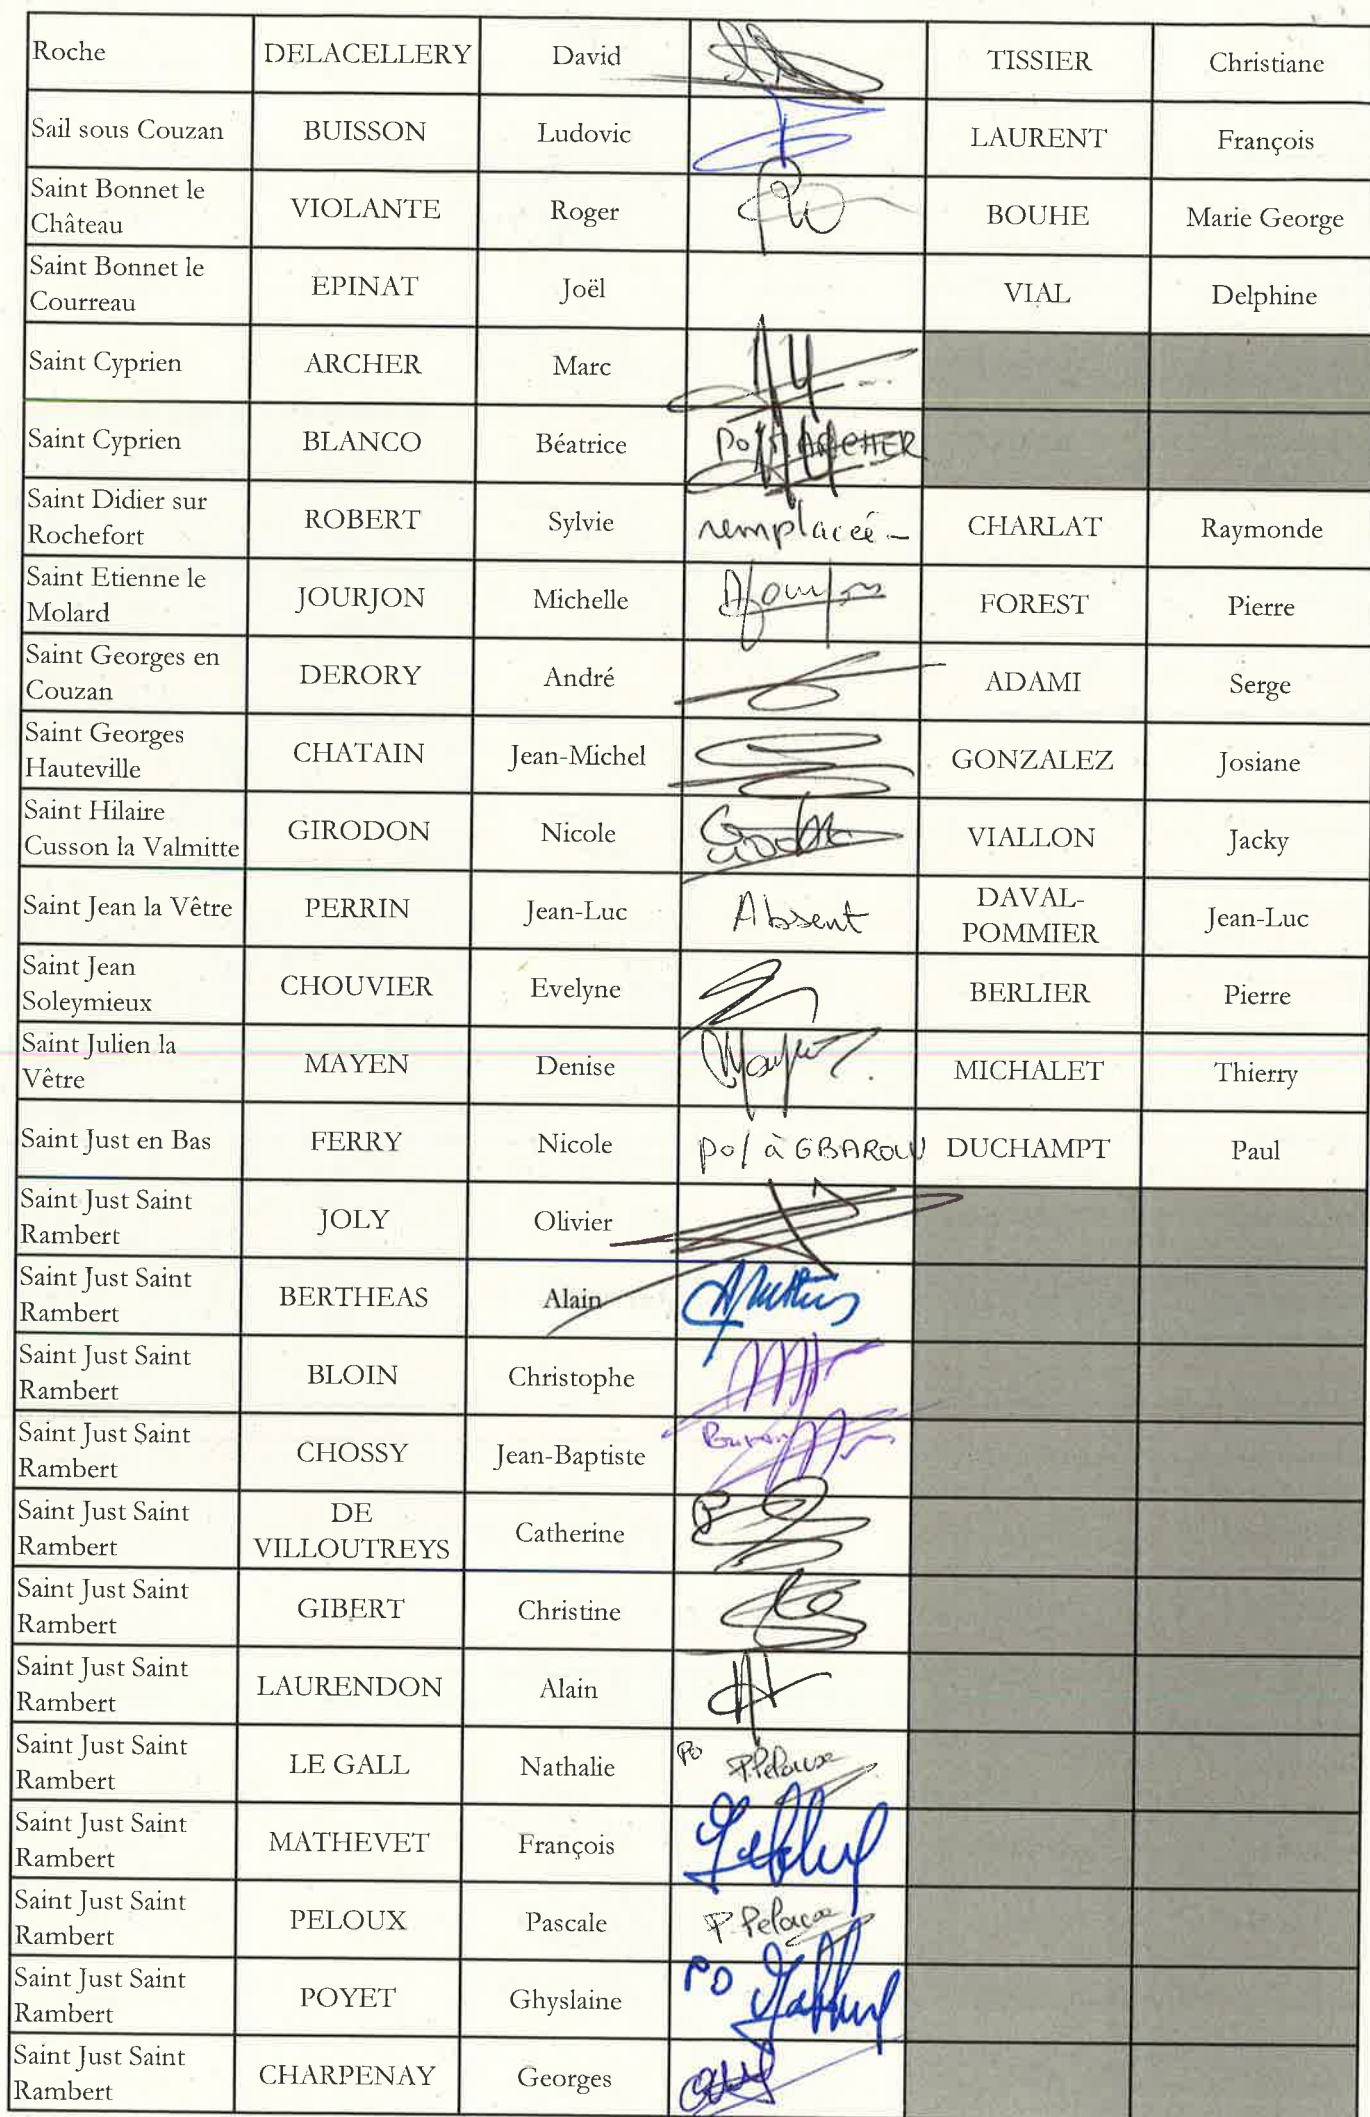 Roche DELACELLERY David TISSIER Christiane
Sail sous Couzan BUISSON Ludovic LAURENT François
Saint Bonnet le
Château VIOLANTE Roger BOUHE Marie George
Saint Bonnet le
Courreau EPINAT Joël VIAL Delphine
Saint Cyprien ARCHER Marc
Saint Cyprien BLANCO Béatrice po/ ARCHER
Saint Didier sur
Rochefort ROBERT Sylvie remplacée - CHARLAT Raymonde
Saint Etienne le
Molard JOURJON Michelle FOREST Pierre
Saint Georges en
Couzan DERORY André ADAMI Serge
Saint Georges
Hauteville CHATAIN Jean-Michel GONZALEZ Josiane
Saint Hilaire
Cusson la Valmitte GIRODON Nicole VIALLON Jacky
Saint Jean la Vêtre PERRIN Jean-Luc Absent DAVAL-
POMMIER Jean-Luc
Saint Jean
Soleymieux CHOUVIER Evelyne BERLIER Pierre
Saint Julien la
Vêtre MAYEN Denise MICHALET Thierry
Saint Just en Bas FERRY Nicole po/ à GBAROU DUCHAMPT Paul
Saint Just Saint
Rambert JOLY Olivier
Saint Just Saint
Rambert BERTHEAS Alain
Saint Just Saint
Rambert BLOIN Christophe
Saint Just Saint
Rambert CHOSSY Jean-Baptiste
Saint Just Saint
Rambert DE
VILLOUTREYS Catherine P
Saint Just Saint
Rambert GIBERT Christine
Saint Just Saint
Rambert LAURENDON Alain
Saint Just Saint
Rambert LE GALL Nathalie PO P. Peloux
Saint Just Saint
Rambert MATHEVET François
Saint Just Saint
Rambert PELOUX Pascale P. Peloux
Saint Just Saint
Rambert POYET Ghyslaine PO
Saint Just Saint
Rambert CHARPENAY Georges